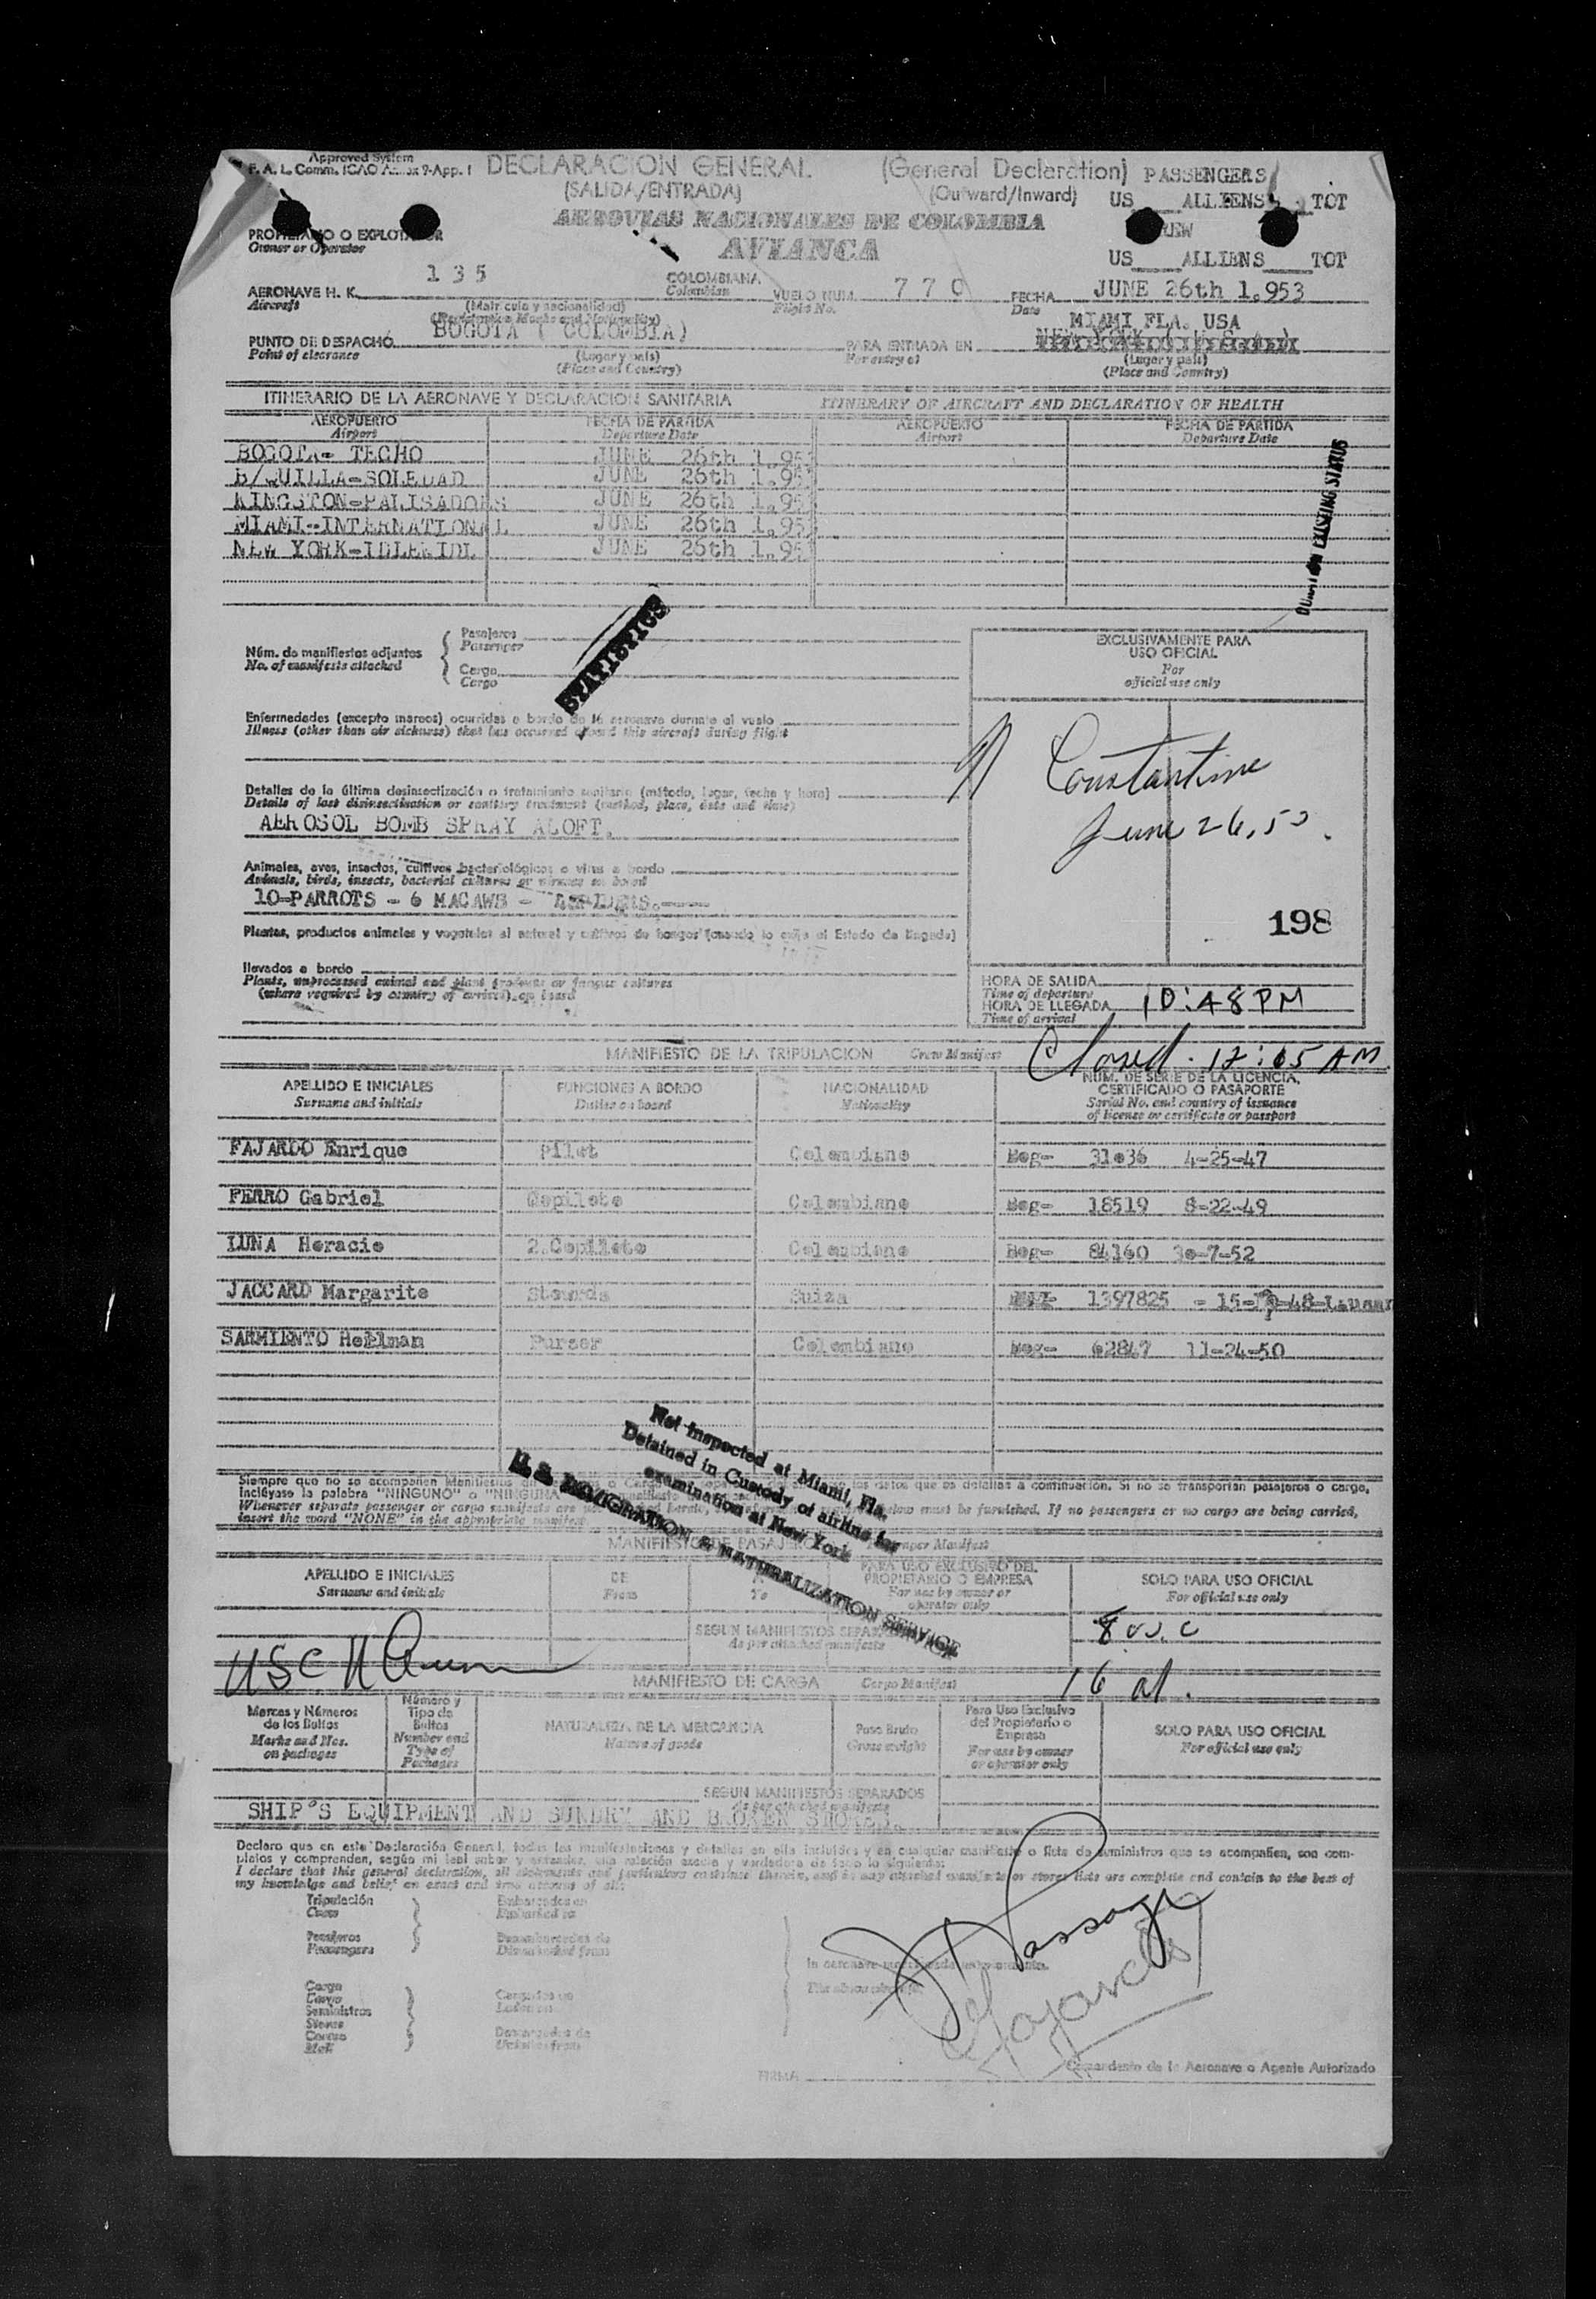 Approved System
F. A. L. Comm. ICAO 9-App. 1
DECLARACION GENERAL (General Declaration)
(SALIDA/ENTRADA) (Outward/Inward)
PASSENGERS
US ALLIENS TOT
AEROVIAS NACIONALES DE COLOMBIA
AVIANCA
PROPIETARIO O EXPLOTADOR
Owner or Operator
US ALLIENS TOT
AERONAVE H. K. 135 COLOMBIANA VUELO NUM. 770 FECHA JUNE 26th 1.953
Aircraft Colombian Flight No. Date
(Matricula y nacionalidad)
MIAMI FLA. USA
PUNTO DE DESPACHO BOGOTA ( COLOMBIA) PARA ENTRADA EN
Point of clearance (Lugar y país) For entry at (Lugar y país)
(Place and Country) (Place and Country)
ITINERARIO DE LA AERONAVE Y DECLARACION SANITARIA ITINERARY OF AIRCRAFT AND DECLARATION OF HEALTH
AEROPUERTO FECHA DE PARTIDA AEROPUERTO FECHA DE PARTIDA
Airport Departure Date Airport Departure Date
BOGOTA- TECHO JUNE 26th 1.953
B/QUILLA-SOLEDAD JUNE 26th 1.953
KINGSTON-PALISADOES JUNE 26th 1.953
MIAMI-INTERNATIONAL JUNE 26th 1.953
NEW YORK-IDLEWIDL JUNE 26th 1.953
STATUS
STATISTICS
Núm. de manifiestos adjuntos
No. of manifests attached
Pasajeros
Passenger
Carga
Cargo
EXCLUSIVAMENTE PARA
USO OFICIAL
For
official use only
Enfermedades (excepto mareos) ocurridas a bordo de la aeronave durante el vuelo
Illness (other than air sickness) that has occurred aboard this aircraft during flight
Constantine
June 26, 53
Detalles de la última desinsectización o tratamiento sanitario (método, lugar, fecha y hora)
Details of last disinsectization or sanitary treatment (method, place, date and time)
AEROSOL BOMB SPRAY ALOFT.
Animales, aves, insectos, cultivos bacteriológicos o virus a bordo
Animals, birds, insects, bacterial cultures or viruses on board
10-PARROTS - 6 MACAWS -
198
Plantas, productos animales y vegetales al natural y cultivos de hongos (cuando lo exija el Estado de llegada)
llevados a bordo
Plants, unprocessed animal and plant products or fungus cultures
(where required by country of arrival) on board
HORA DE SALIDA
Time of departure
HORA DE LLEGADA 10:48 PM
Time of arrival
Closed. 12:05 AM
MANIFIESTO DE LA TRIPULACION Crew Manifest
APELLIDO E INICIALES FUNCIONES A BORDO NACIONALIDAD NUM. DE SERIE DE LA LICENCIA, CERTIFICADO O PASAPORTE
Surname and initials Duties on board Nationality Serial No. and country of issuance of license or certificate or passport
FAJARDO Enrique Pilot Colombiano Bog- 31036 4-25-47
FERRO Gabriel Copiloto Colombiano Bog- 18519 8-22-49
LUNA Horacio 2.Copiloto Colombiano Bog- 84160 30-7-52
JACCARD Margarite Suiza 1397825
SARMIENTO Hellman Purser Colombiano Bog- 62847 11-24-50
Not inspected at Miami, Fla.
Detained in Custody of airline for
examination at New York
U. S. IMMIGRATION & NATURALIZATION SERVICE
Siempre que no se acompañen Manifiestos de detallan a continuación. Si no se transportan pasajeros o carga,
inclúyase la palabra "NINGUNO" o "NINGUNA"
Whenever separate passenger or cargo manifests are below must be furnished. If no passengers or no cargo are being carried,
insert the word "NONE" in the appropriate manifest
MANIFIESTO DE PASAJEROS Passenger Manifest
APELLIDO E INICIALES DE A PARA USO EXCLUSIVO DEL PROPIETARIO O EMPRESA SOLO PARA USO OFICIAL
Surname and initials From To For use by owner or operator only For official use only
SEGUN MANIFIESTOS SEPARADOS
As per attached manifests
8 US.C
16 al.
MANIFIESTO DE CARGA Cargo Manifest
Marcas y Números de los Bultos Número y Tipo de Bultos NATURALEZA DE LA MERCANCIA Peso Bruto Para Uso Exclusivo del Propietario o Empresa SOLO PARA USO OFICIAL
Marks and Nos. on packages Number and Type of Packages Nature of goods Gross weight For use by owner or operator only For official use only
SEGUN MANIFIESTOS SEPARADOS
As per attached manifests
SHIP'S EQUIPMENT AND SUNDRY AND BROKEN STORES.
Declaro que en esta Declaración General, todas las manifestaciones y detalles en ella incluidos y en cualquier manifiesto o lista de suministros que se acompañen, son com-
pletos y comprenden, según mi leal saber y entender, una relación exacta y verdadera de todo lo siguiente:
I declare that this general declaration, all statements and particulars contained therein, and in any attached manifests or stores lists are complete and contain to the best of
my knowledge and belief an exact and true account of all:
Tripulación Embarcados en
Crew Embarked in
Pasajeros Desembarcados de
Passengers Disembarked from
Carga Cargados en
Cargo Laden on
Suministros
Stores
Correo Descargados de
Mail Unladen from
FIRMA
Comandante de la Aeronave o Agente Autorizado